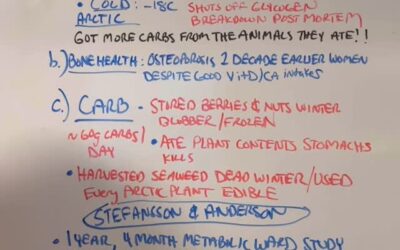 • COLD: -18C SHUTS OFF GLYCOGEN
ARCTIC BREAKDOWN POST MORTEM
GOT MORE CARBS FROM THE ANIMALS THEY ATE!!
b.) BONE HEALTH: OSTEOPOROSIS 2 DECADE EARLIER WOMEN
DESPITE GOOD VIT D/CA INTAKES
c.) CARB - STORED BERRIES & NUTS WINTER
BLUBBER/FROZEN
~ 60g CARBS/DAY
• ATE PLANT CONTENTS STOMACHS
KILLS
• HARVESTED SEAWEED DEAD WINTER/USED
Every ARCTIC PLANT EDIBLE
STEFANSSON & ANDERSON
• 1 YEAR, 4 MONTH METABOLIC WARD STUDY